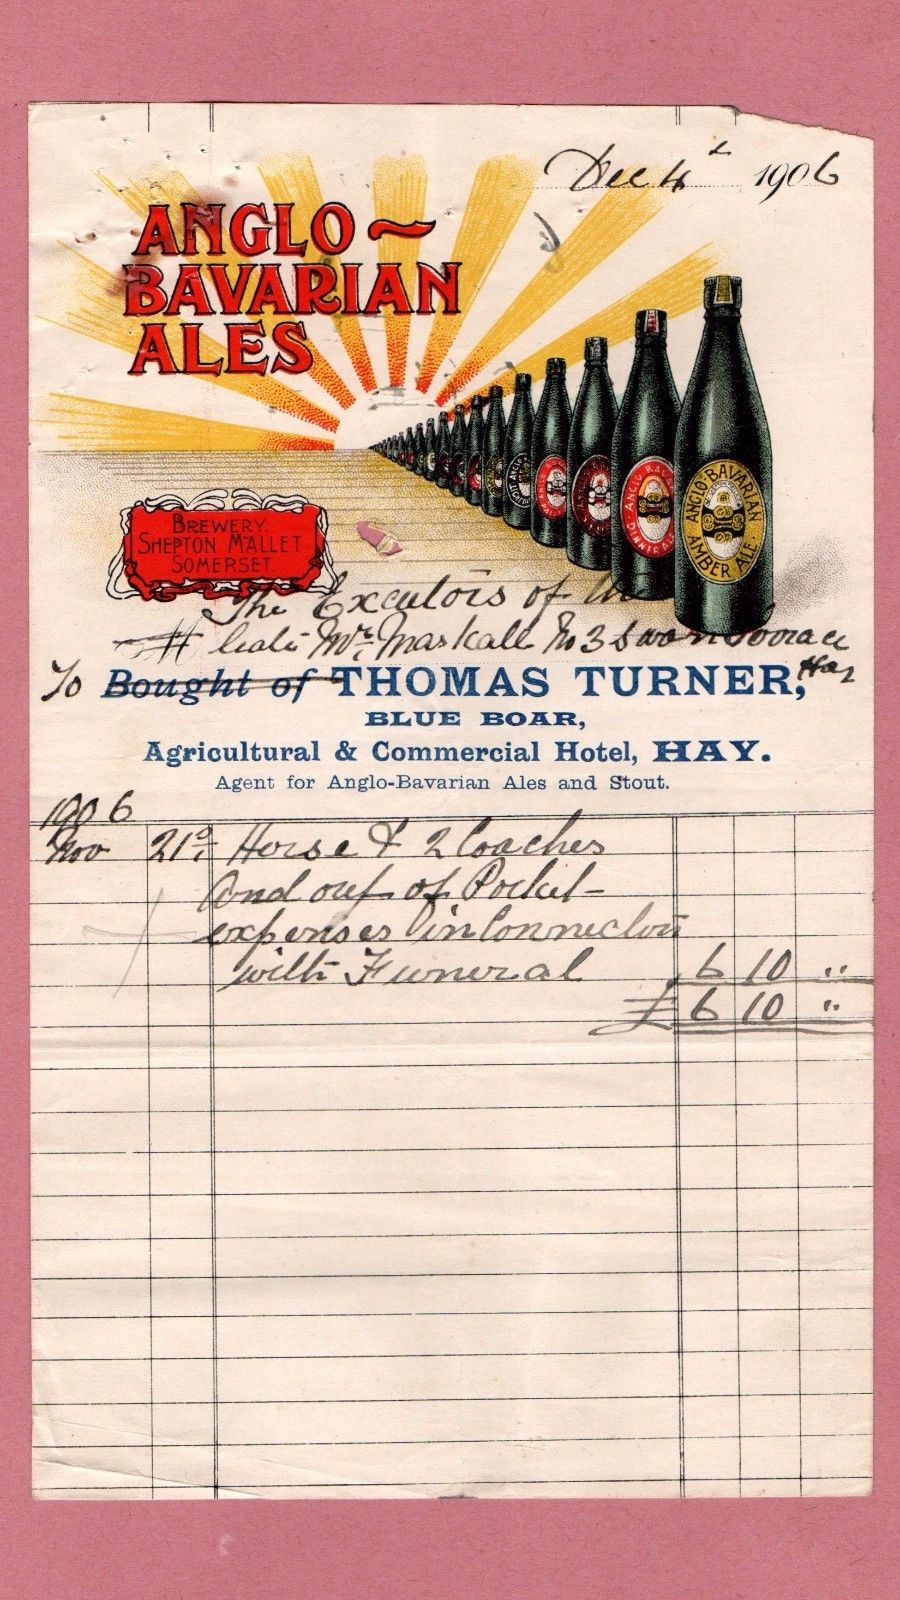 Dec 4th 1906
ANGLO~
BAVARIAN
ALES
BREWERY.
SHEPTON MALLET
SOMERSET.
ANGLO-BAVARIAN
AMBER ALE
The Executors of the
late Mr. Maskall No 3 Swan Terrace
Hay
To Bought of THOMAS TURNER,
BLUE BOAR,
Agricultural & Commercial Hotel, HAY.
Agent for Anglo-Bavarian Ales and Stout.
1906
Nov 21st Horse & 2 Coaches
And out of Pocket
expenses in Connection
with Funeral 6 10 "
£ 6 10 "